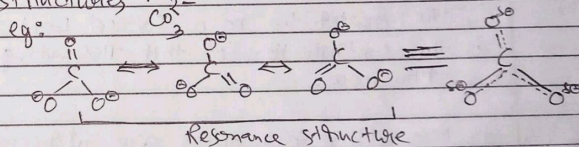 structures
eg: CO₃²⁻
O O⊖ O⊖ Oδ⊖
C ↔ C ↔ C ≡ C
⊖O O⊖ ⊖O O O O⊖ δ⊖O Oδ⊖
Resonance structure